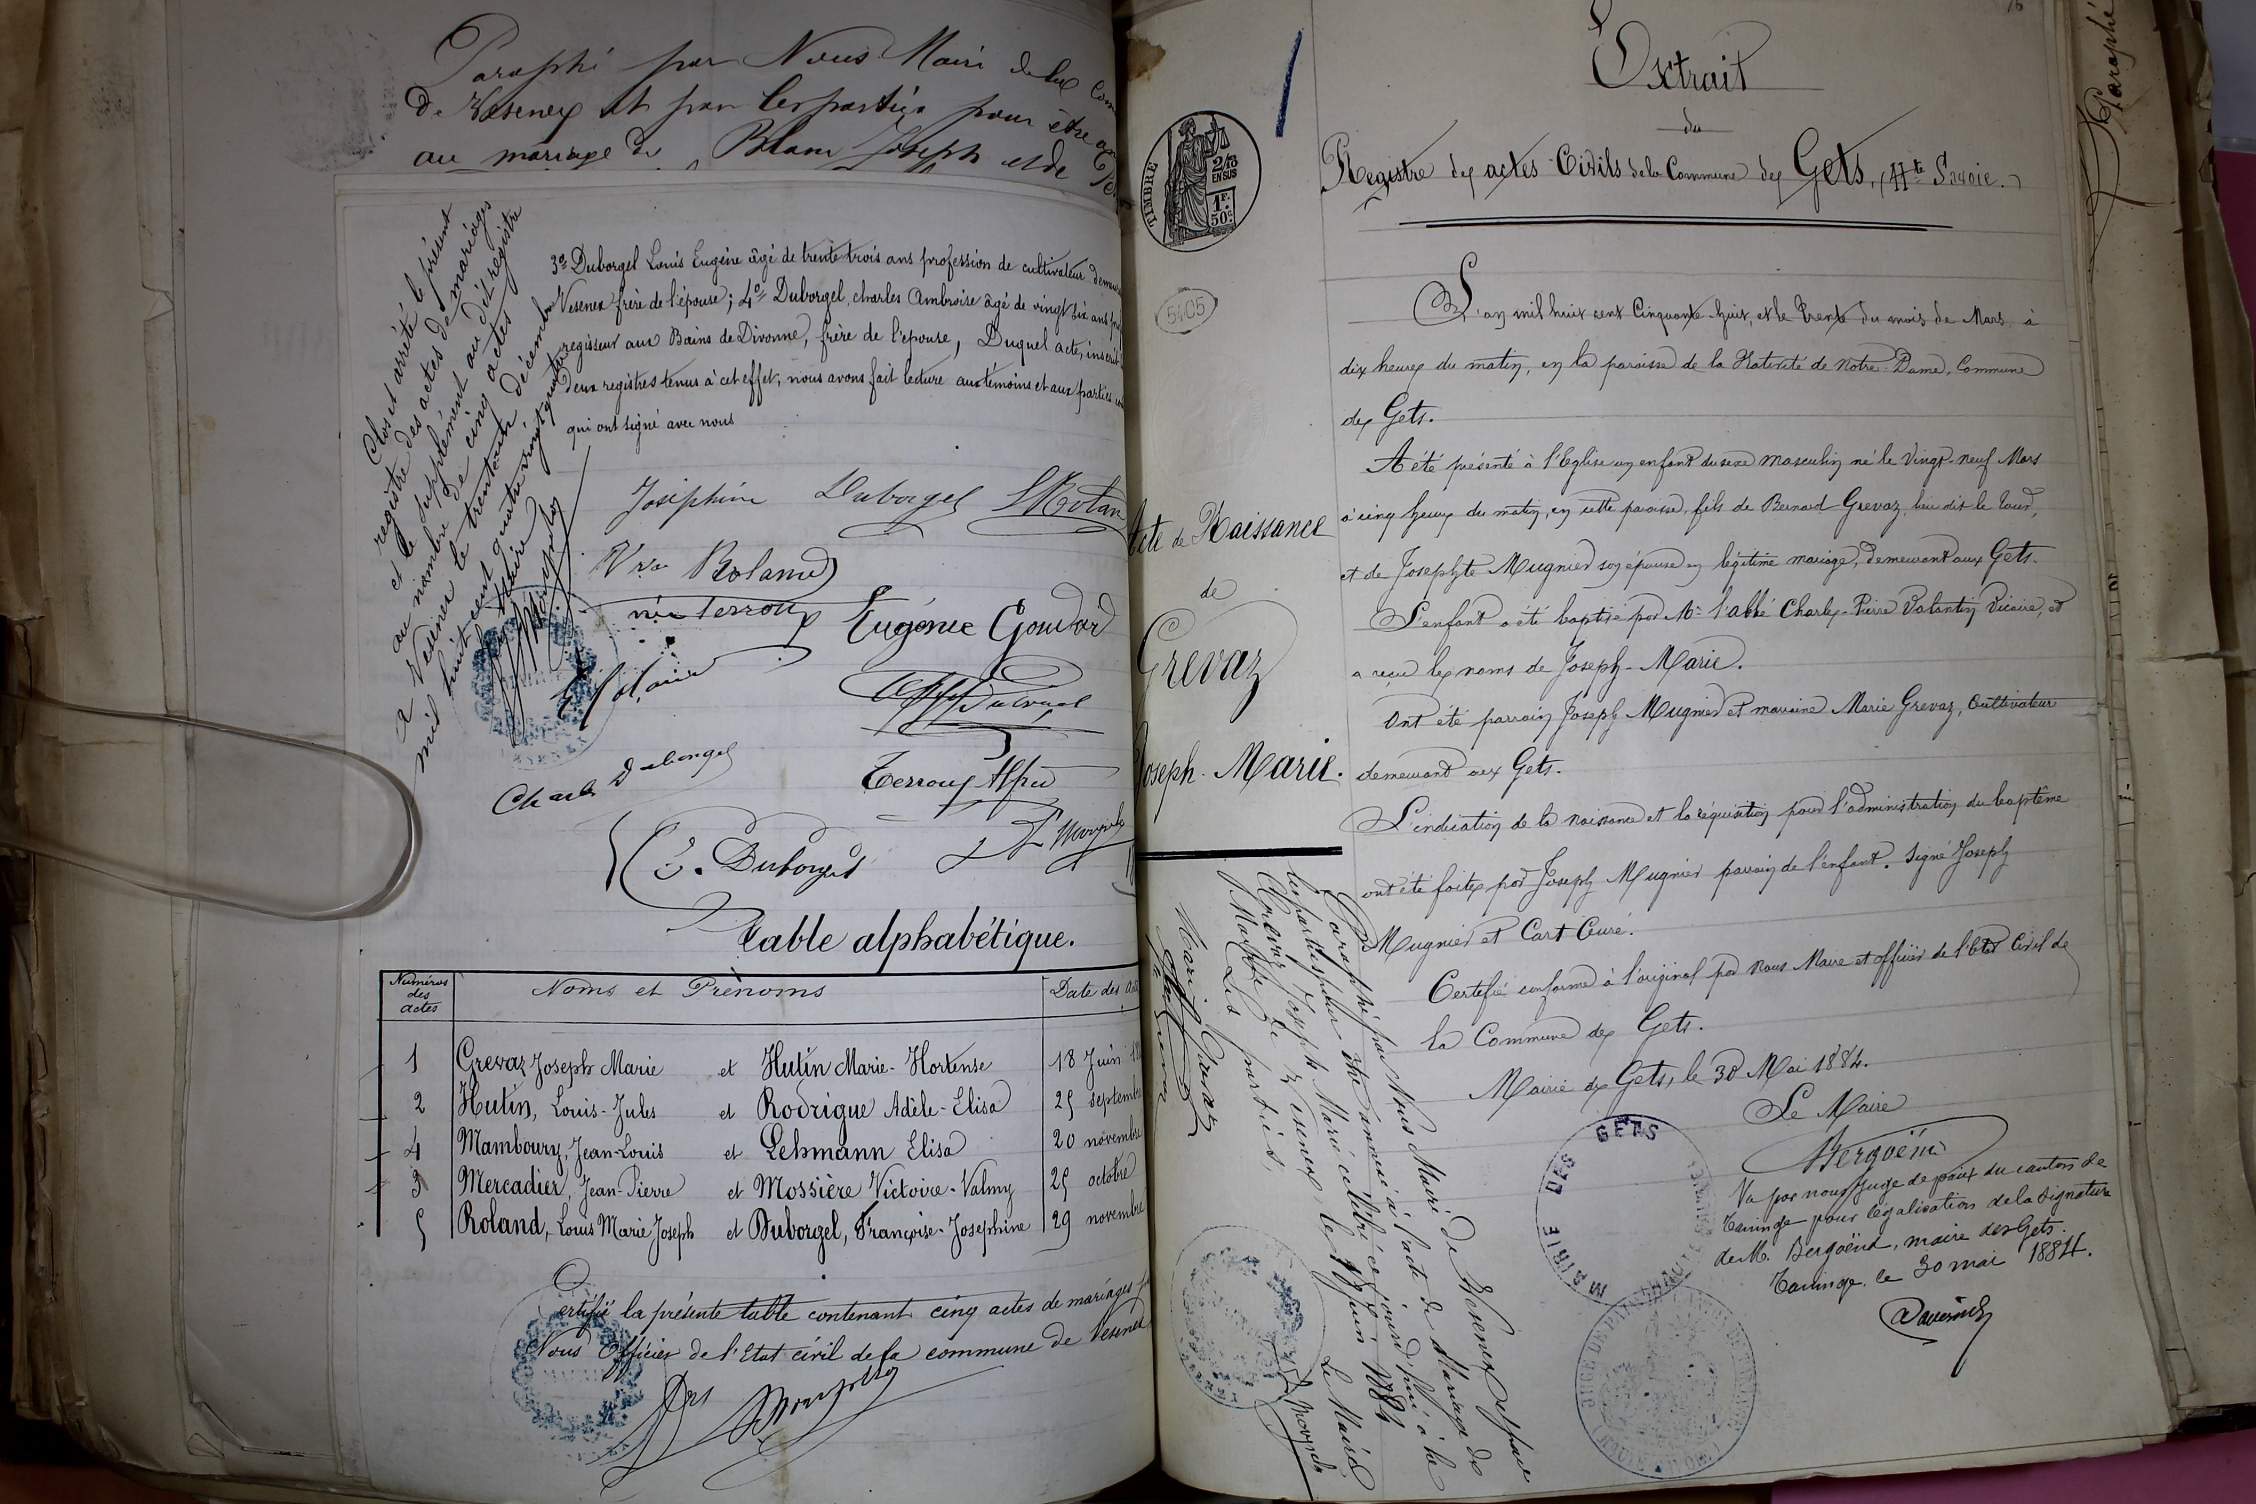 Paraphé par Nous Maire de la Com
de Vesenex et par les parties pour être an
au mariage de Blanc Joseph et de
Clos et arrêté le présent
registre des actes de mariages
et le supplément au dit registre
au nombre de cinq actes
a Vesenex le trente un décembre
mil huit cent quatre vingt quatre
Le Maire
3º Duborgel Louis Eugène âgé de trente trois ans profession de cultivateur demeur
Vesenex frère de l'épouse; 4º Duborgel, charles Ambroise âgé de vingt six ans prof
regisseur aux Bains de Divonne, frère de l'épouse, Duquel acte, inscrit
deux registres tenus à cet effet, nous avons fait lecture aux témoins et aux parties
qui ont signé avec nous
Joséphine Duborgel L Rolan
Vve Roland
née Terroux Eugénie Goudar
Charles Duborgel
Terroux Alfred
E. Duborgel
Table alphabétique.
Numéros des actes
Noms et Prénoms
Date des act
1 Grevaz Joseph Marie et Hutin Marie-Hortense 18 Juin
2 Hutin, Louis-Jules et Rodrigue Adèle-Elisa 25 septembre
4 Mamboury, Jean-Louis et Lehmann Elisa 20 novembre
3 Mercadier, Jean-Pierre et Mossière Victoire-Valmy 25 octobre
5 Roland, Louis Marie Joseph et Duborgel, Françoise-Josephine 29 novembre
Certifié la présente table contenant cinq actes de mariages
Nous Officier de l'Etat civil de la commune de Vesenex
Extrait
du
Registre des actes Civils de la Commune des Gets, (Hte Savoie.)
TIMBRE
2/10
EN SUS
1F.
50c
5405
Acte de Naissance
de
Grevaz
Joseph-Marie.
L'an mil huit cent Cinquante-huit, et le trente du mois de Mars à
dix heures du matin, en la paroisse de la Nativité de Notre-Dame, Commune
des Gets.
A été présenté à l'Eglise un enfant du sexe masculin né le vingt-neuf Mars
à cinq heures du matin, en cette paroisse, fils de Bernard Grevaz, lieu dit le
et de Josephte Mugnier son épouse en légitime mariage, demeurant aux Gets.
L'enfant a été baptisé par Mr l'abbé Charles-Pierre Valentin Vicaire, et
a reçu les noms de Joseph-Marie.
Ont été parrain Joseph Mugnier et marraine Marie Grevaz, Cultivateur
demeurant aux Gets.
L'indication de la naissance et la réquisition pour l'administration du baptême
ont été faites par Joseph Mugnier parrain de l'enfant. Signé Joseph
Mugnier et Cart Curé.
Certifié conforme à l'original par Nous Maire et officier de l'Etat Civil de
la Commune des Gets.
Mairie des Gets, le 30 Mai 1884.
Le Maire
Bergoënd
MAIRIE DES GETS
Vu par nous Juge de paix du canton de
Taninge pour légalisation de la signature
de M. Bergoënd, maire des Gets.
Taninge, le 30 mai 1884.
JUGE DE PAIX
Paraphé par Nous Maire de Vesenex et par
les parties pour être annexé à l'acte de Mariage de
Grevaz Joseph Marie célébré ce jourd'hui à la
Mairie de Vesenex le 18 Juin 1884
Les parties, Le Maire
Paraphé